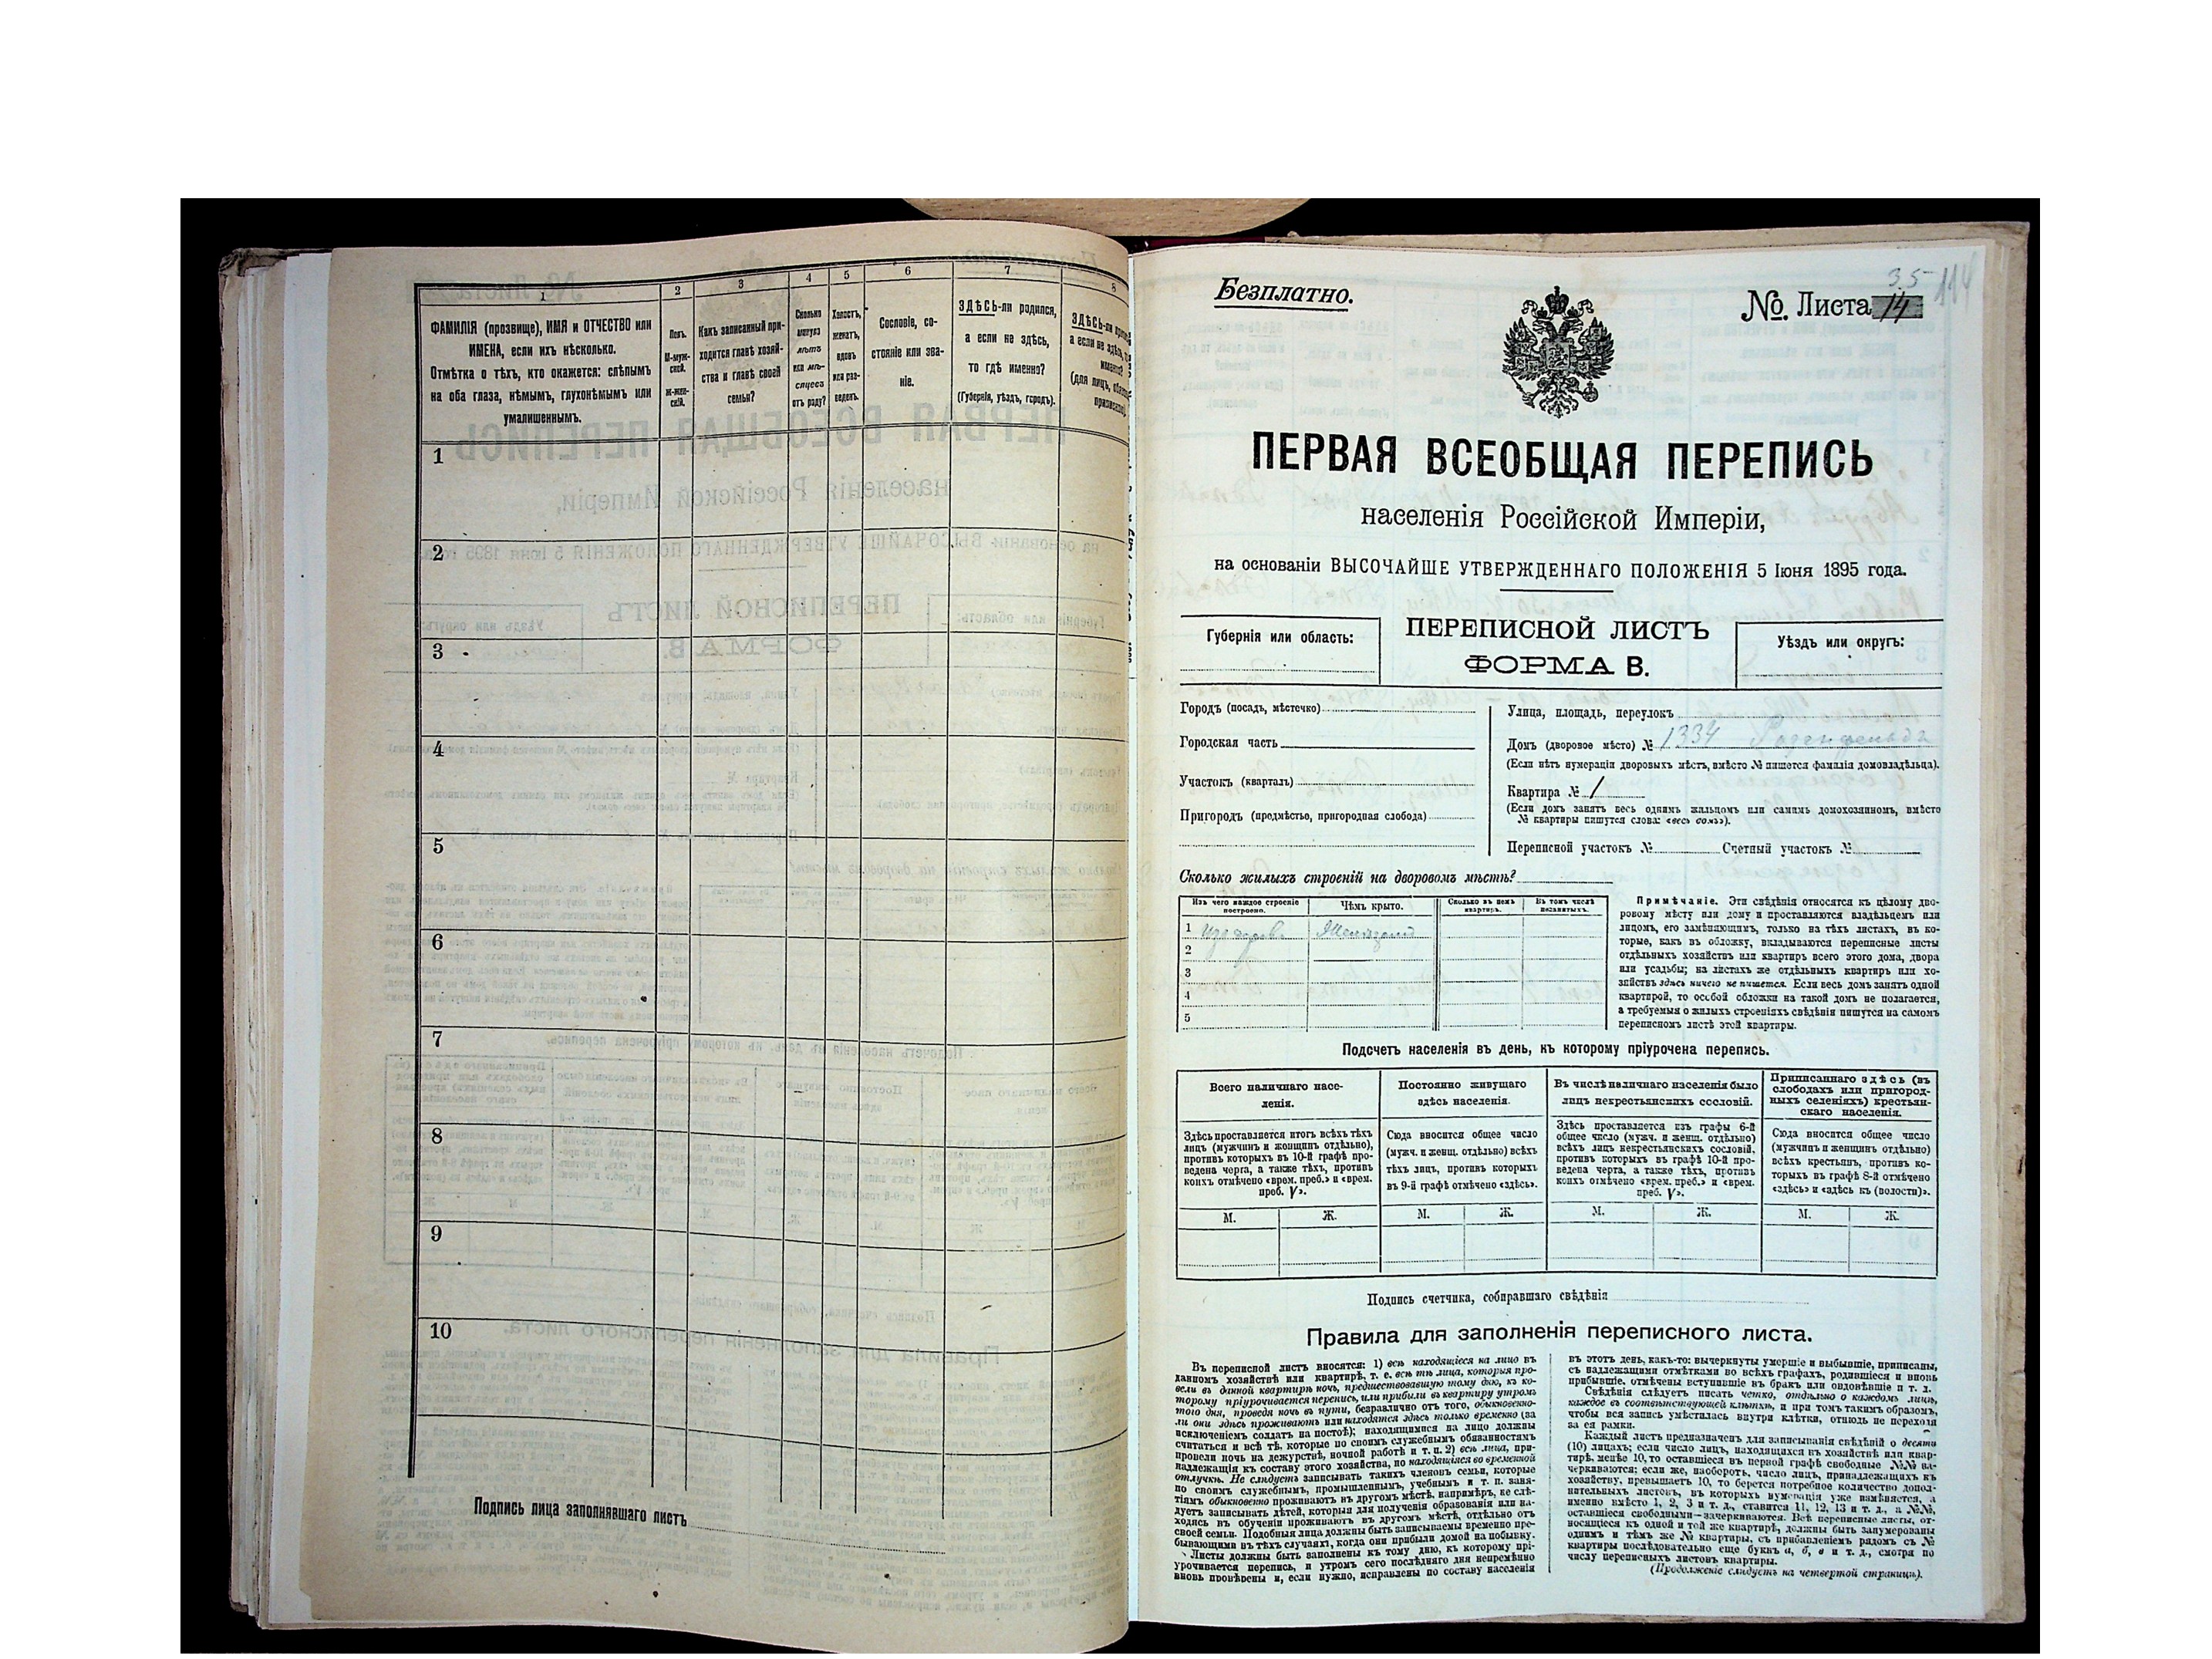 1
2
3
4
5
6
7
8
ФАМИЛІЯ (прозвище), ИМЯ и ОТЧЕСТВО или
ИМЕНА, если ихъ нѣсколько.
Отмѣтка о тѣхъ, кто окажется: слѣпымъ
на оба глаза, нѣмымъ, глухонѣмымъ или
умалишеннымъ.
Полъ.
М-муж-
ской.
Ж-жен-
скій.
Какъ записанный при-
ходится главѣ хозяй-
ства и главѣ своей
семьи?
Сколько
минуло
лѣтъ
или мѣ-
сяцевъ
отъ роду?
Холостъ,
женатъ,
вдовъ
или раз-
веденъ.
Сословіе, со-
стояніе или зва-
ніе.
ЗДѢСЬ-ли родился,
а если не здѣсь,
то гдѣ именно?
(Губернія, уѣздъ, городъ).
ЗДѢСЬ-ли
а если не здѣсь,
(для лицъ,
1
2
3
4
5
6
7
8
9
10
Подпись лица заполнявшаго листъ
Безплатно.
35
114
№ Листа 14
ПЕРВАЯ ВСЕОБЩАЯ ПЕРЕПИСЬ
населенія Россійской Имперіи,
на основаніи ВЫСОЧАЙШЕ УТВЕРЖДЕННАГО ПОЛОЖЕНІЯ 5 Іюня 1895 года.
Губернія или область:
ПЕРЕПИСНОЙ ЛИСТЪ
ФОРМА В.
Уѣздъ или округъ:
Городъ (посадъ, мѣстечко)
Городская часть
Участокъ (кварталъ)
Пригородъ (предмѣстье, пригородная слобода)
Улица, площадь, переулокъ
Домъ (дворовое мѣсто) № 1334 Розенфельда
(Если нѣтъ нумераціи дворовыхъ мѣстъ, вмѣсто № пишется фамилія домовладѣльца).
Квартира № 1
(Если домъ занятъ весь однимъ жильцомъ или самимъ домохозяиномъ, вмѣсто
№ квартиры пишутся слова: «весь домъ»).
Переписной участокъ № Счетный участокъ №
Сколько жилыхъ строеній на дворовомъ мѣстѣ?
Изъ чего каждое строеніе
построено.
Чѣмъ крыто.
Сколько въ немъ
квартиръ.
Въ томъ числѣ
незанятыхъ.
1
2
3
4
5
Примѣчаніе. Эти свѣдѣнія относятся къ цѣлому дво-
ровому мѣсту или дому и проставляются владѣльцемъ или
лицомъ, его замѣняющимъ, только на тѣхъ листахъ, въ ко-
торые, какъ въ обложку, вкладываются переписные листы
отдѣльныхъ хозяйствъ или квартиръ всего этого дома, двора
или усадьбы; на листахъ же отдѣльныхъ квартиръ или хо-
зяйствъ здѣсь ничего не пишется. Если весь домъ занятъ одной
квартирой, то особой обложки на такой домъ не полагается,
а требуемыя о жилыхъ строеніяхъ свѣдѣнія пишутся на самомъ
переписномъ листѣ этой квартиры.
Подсчетъ населенія въ день, къ которому пріурочена перепись.
Всего наличнаго насе-
ленія.
Постоянно живущаго
здѣсь населенія.
Въ числѣ наличнаго населенія было
лицъ некрестьянскихъ сословій.
Приписаннаго здѣсь (въ
слободахъ или пригород-
ныхъ селеніяхъ) крестьян-
скаго населенія.
Здѣсь проставляется итогъ всѣхъ тѣхъ
лицъ (мужчинъ и женщинъ отдѣльно),
противъ которыхъ въ 10-й графѣ про-
ведена черта, а также тѣхъ, противъ
коихъ отмѣчено «врем. преб.» и «врем.
преб. V».
Сюда вносится общее число
(мужч. и женщ. отдѣльно) всѣхъ
тѣхъ лицъ, противъ которыхъ
въ 9-й графѣ отмѣчено «здѣсь».
Здѣсь проставляется изъ графы 6-й
общее число (мужч. и женщ. отдѣльно)
всѣхъ лицъ некрестьянскихъ сословій,
противъ которыхъ въ графѣ 10-й про-
ведена черта, а также тѣхъ, противъ
коихъ отмѣчено «врем. преб.» и «врем.
преб. V».
Сюда вносится общее число
(мужчинъ и женщинъ отдѣльно)
всѣхъ крестьянъ, противъ ко-
торыхъ въ графѣ 8-й отмѣчено
«здѣсь» и «здѣсь къ (волости)».
М. Ж. М. Ж. М. Ж. М. Ж.
Подпись счетчика, собиравшаго свѣдѣнія
Правила для заполненія переписного листа.
Въ переписной листъ вносятся: 1) всѣ находящіеся на лицо въ
данномъ хозяйствѣ или квартирѣ, т. е. всѣ тѣ лица, которыя про-
вели въ данной квартирѣ ночь, предшествовавшую тому дню, къ ко-
торому пріурочивается перепись, или прибыли въ квартиру утромъ
того дня, проведя ночь въ пути, безразлично отъ того, обыкновенно-
ли они здѣсь проживаютъ или находятся здѣсь только временно (за
исключеніемъ солдатъ на постоѣ); находящимися на лицо должны
считаться и всѣ тѣ, которые по своимъ служебнымъ обязанностямъ
провели ночь на дежурствѣ, ночной работѣ и т. п. 2) всѣ лица, при-
надлежащія къ составу этого хозяйства, но находящіяся во временной
отлучкѣ. Не слѣдуетъ записывать такихъ членовъ семьи, которые
по своимъ служебнымъ, промышленнымъ, учебнымъ и т. п. заня-
тіямъ обыкновенно проживаютъ въ другомъ мѣстѣ, напримѣръ, не слѣ-
дуетъ записывать дѣтей, которыя для полученія образованія или на-
ходясь въ обученіи проживаютъ въ другомъ мѣстѣ, отдѣльно отъ
своей семьи. Подобныя лица должны быть записываемы временно пре-
бывающими въ тѣхъ случаяхъ, когда они прибыли домой на побывку.
Листы должны быть заполнены къ тому дню, къ которому прі-
урочивается перепись, и утромъ сего послѣдняго дня непремѣнно
вновь провѣрены и, если нужно, исправлены по составу населенія
въ этотъ день, какъ-то: вычеркнуты умершіе и выбывшіе, приписаны,
съ надлежащими отмѣтками во всѣхъ графахъ, родившіеся и вновь
прибывшіе, отмѣчены вступившіе въ бракъ или овдовѣвшіе и т. д.
Свѣдѣнія слѣдуетъ писать четко, отдѣльно о каждомъ лицѣ,
каждое въ соотвѣтствующей клѣткѣ, и при томъ такимъ образомъ,
чтобы вся запись умѣстилась внутри клѣтки, отнюдь не переходя
за ея рамки.
Каждый листъ предназначенъ для записыванія свѣдѣній о десяти
(10) лицахъ; если число лицъ, находящихся въ хозяйствѣ или квар-
тирѣ, менѣе 10, то оставшіеся въ первой графѣ свободные №№ за-
черкиваются; если же, наоборотъ, число лицъ, принадлежащихъ къ
хозяйству, превышаетъ 10, то берется потребное количество допол-
нительныхъ листовъ, въ которыхъ нумерація уже измѣняется, а
именно вмѣсто 1, 2, 3 и т. д., ставится 11, 12, 13 и т. д., а №№,
оставшіеся свободными—зачеркиваются. Всѣ переписные листы, от-
носящіеся къ одной и той же квартирѣ, должны быть занумерованы
однимъ и тѣмъ же № квартиры, съ прибавленіемъ рядомъ съ №
квартиры послѣдовательно еще буквъ а, б, в и т. д., смотря по
числу переписныхъ листовъ квартиры.
(Продолженіе слѣдуетъ на четвертой страницѣ).